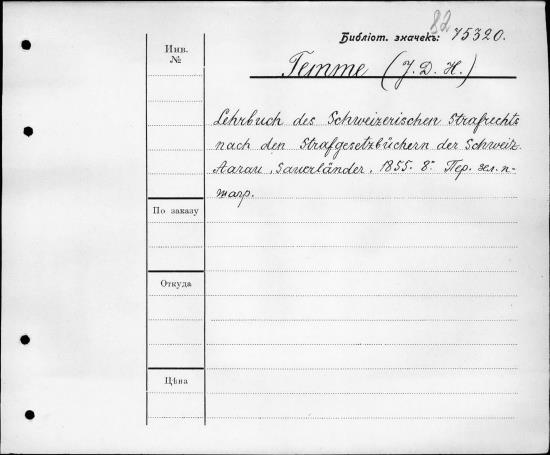 82
Библіот. значекъ: 75320.
Инв.
№
Temme (J. D. H.)
Lehrbuch des Schweizerischen Strafrechts
nach den Strafgesetzbüchern der Schweiz.
Aarau, Sauerländer, 1855. 8º Пер. зел. п-
map.
По заказу
Откуда
Цѣна